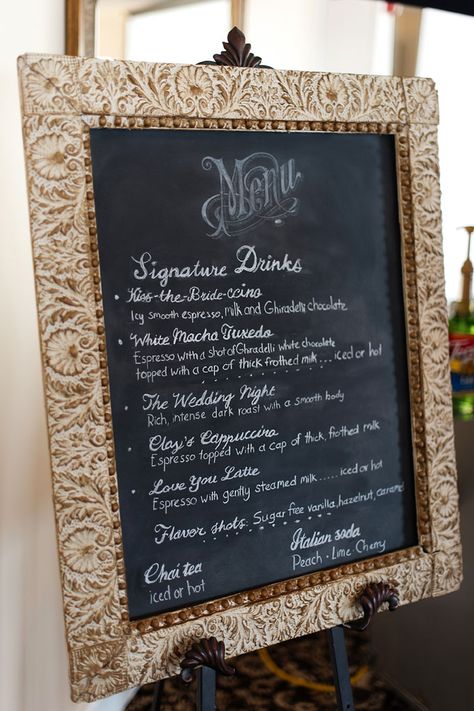 Menu
Signature Drinks
• Kiss-the-Bride-ccino
Icy smooth espresso, milk and Ghiradelli chocolate
• White Macha Tuxedo
Espresso with a shot of Ghiradelli white chocolate
topped with a cap of thick frothed milk .... iced or hot
• The Wedding Night
Rich, intense dark roast with a smooth body
• Clazi's Cappuccino
Espresso topped with a cap of thick, frothed milk
• Love You Latte
Espresso with gently steamed milk ..... iced or hot
Flavor shots: Sugar free vanilla, hazelnut, caramel
Chai tea
iced or hot
Italian soda
Peach · Lime Cherry